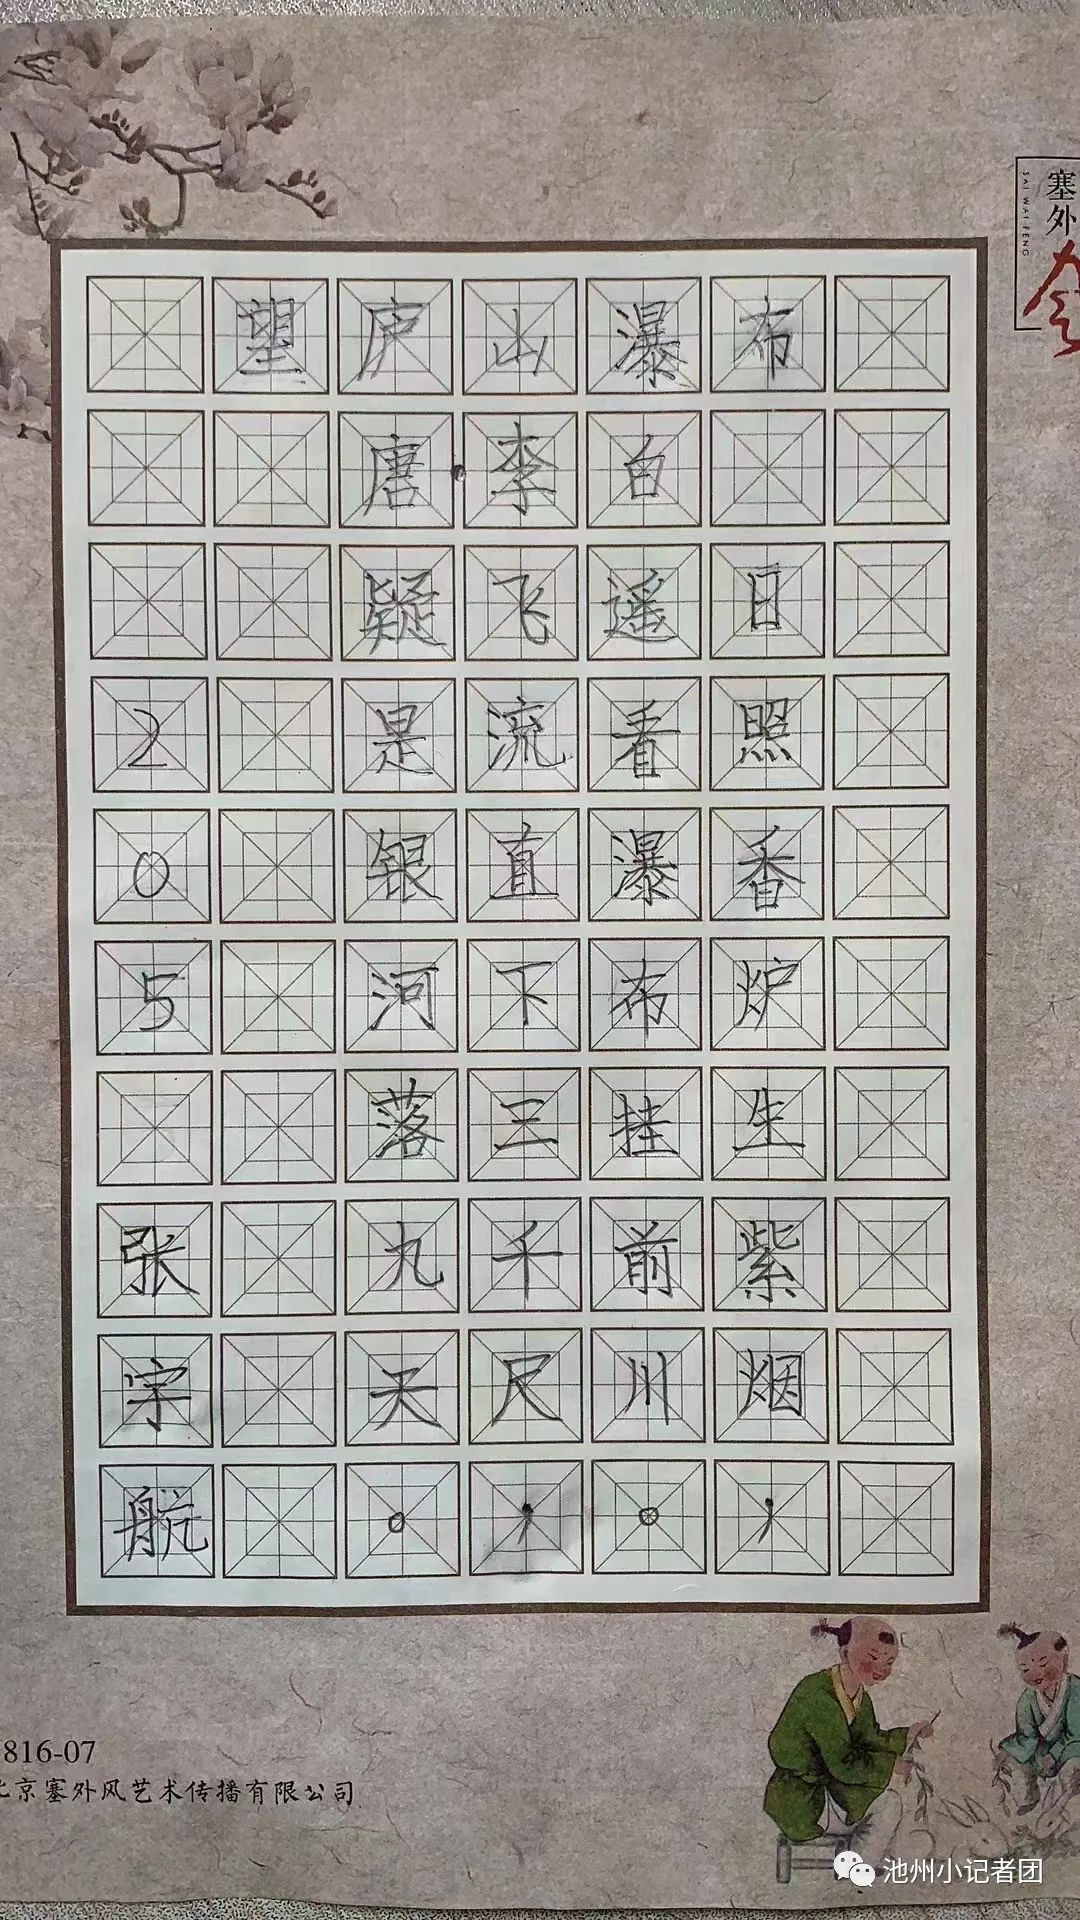 望庐山瀑布
唐·李白
日照香炉生紫烟，
遥看瀑布挂前川。
飞流直下三千尺，
疑是银河落九天。
205
张宇航
塞外
SAI WAI FENG
816-07
北京塞外风艺术传播有限公司
池州小记者团